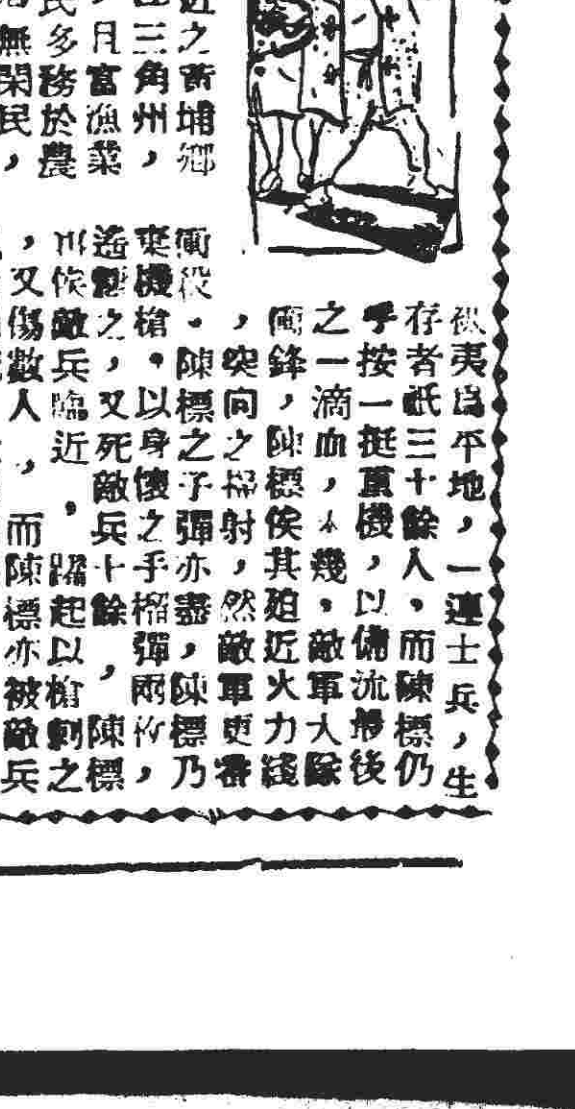 近之黃埔鄉
三角州，
，且富漁業
民多務於農
無閑民，
被夷爲平地，一連士兵，生
存者祇三十餘人，而陳標仍
手按一挺重機，以備流最後
之一滴血，未幾，敵軍大隊
衝鋒，陳標俟其迫近火力綫
，突向之掃射，然敵軍更番
衝殺．陳標之子彈亦盡，陳標乃
棄機槍，以身懷之手榴彈兩枚，
遙擲之，又死敵兵十餘，陳標
俟敵兵臨近，躍起以槍刺之
，又傷數人，而陳標亦被敵兵